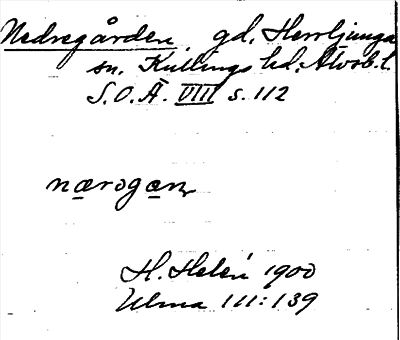 Nedregården, gd, Herrljunga
sn. Kullings hd. Älvsb. l.
S.O.Ä. VIII s. 112
nærogan
H. Helén 1900
Ulma 111:139